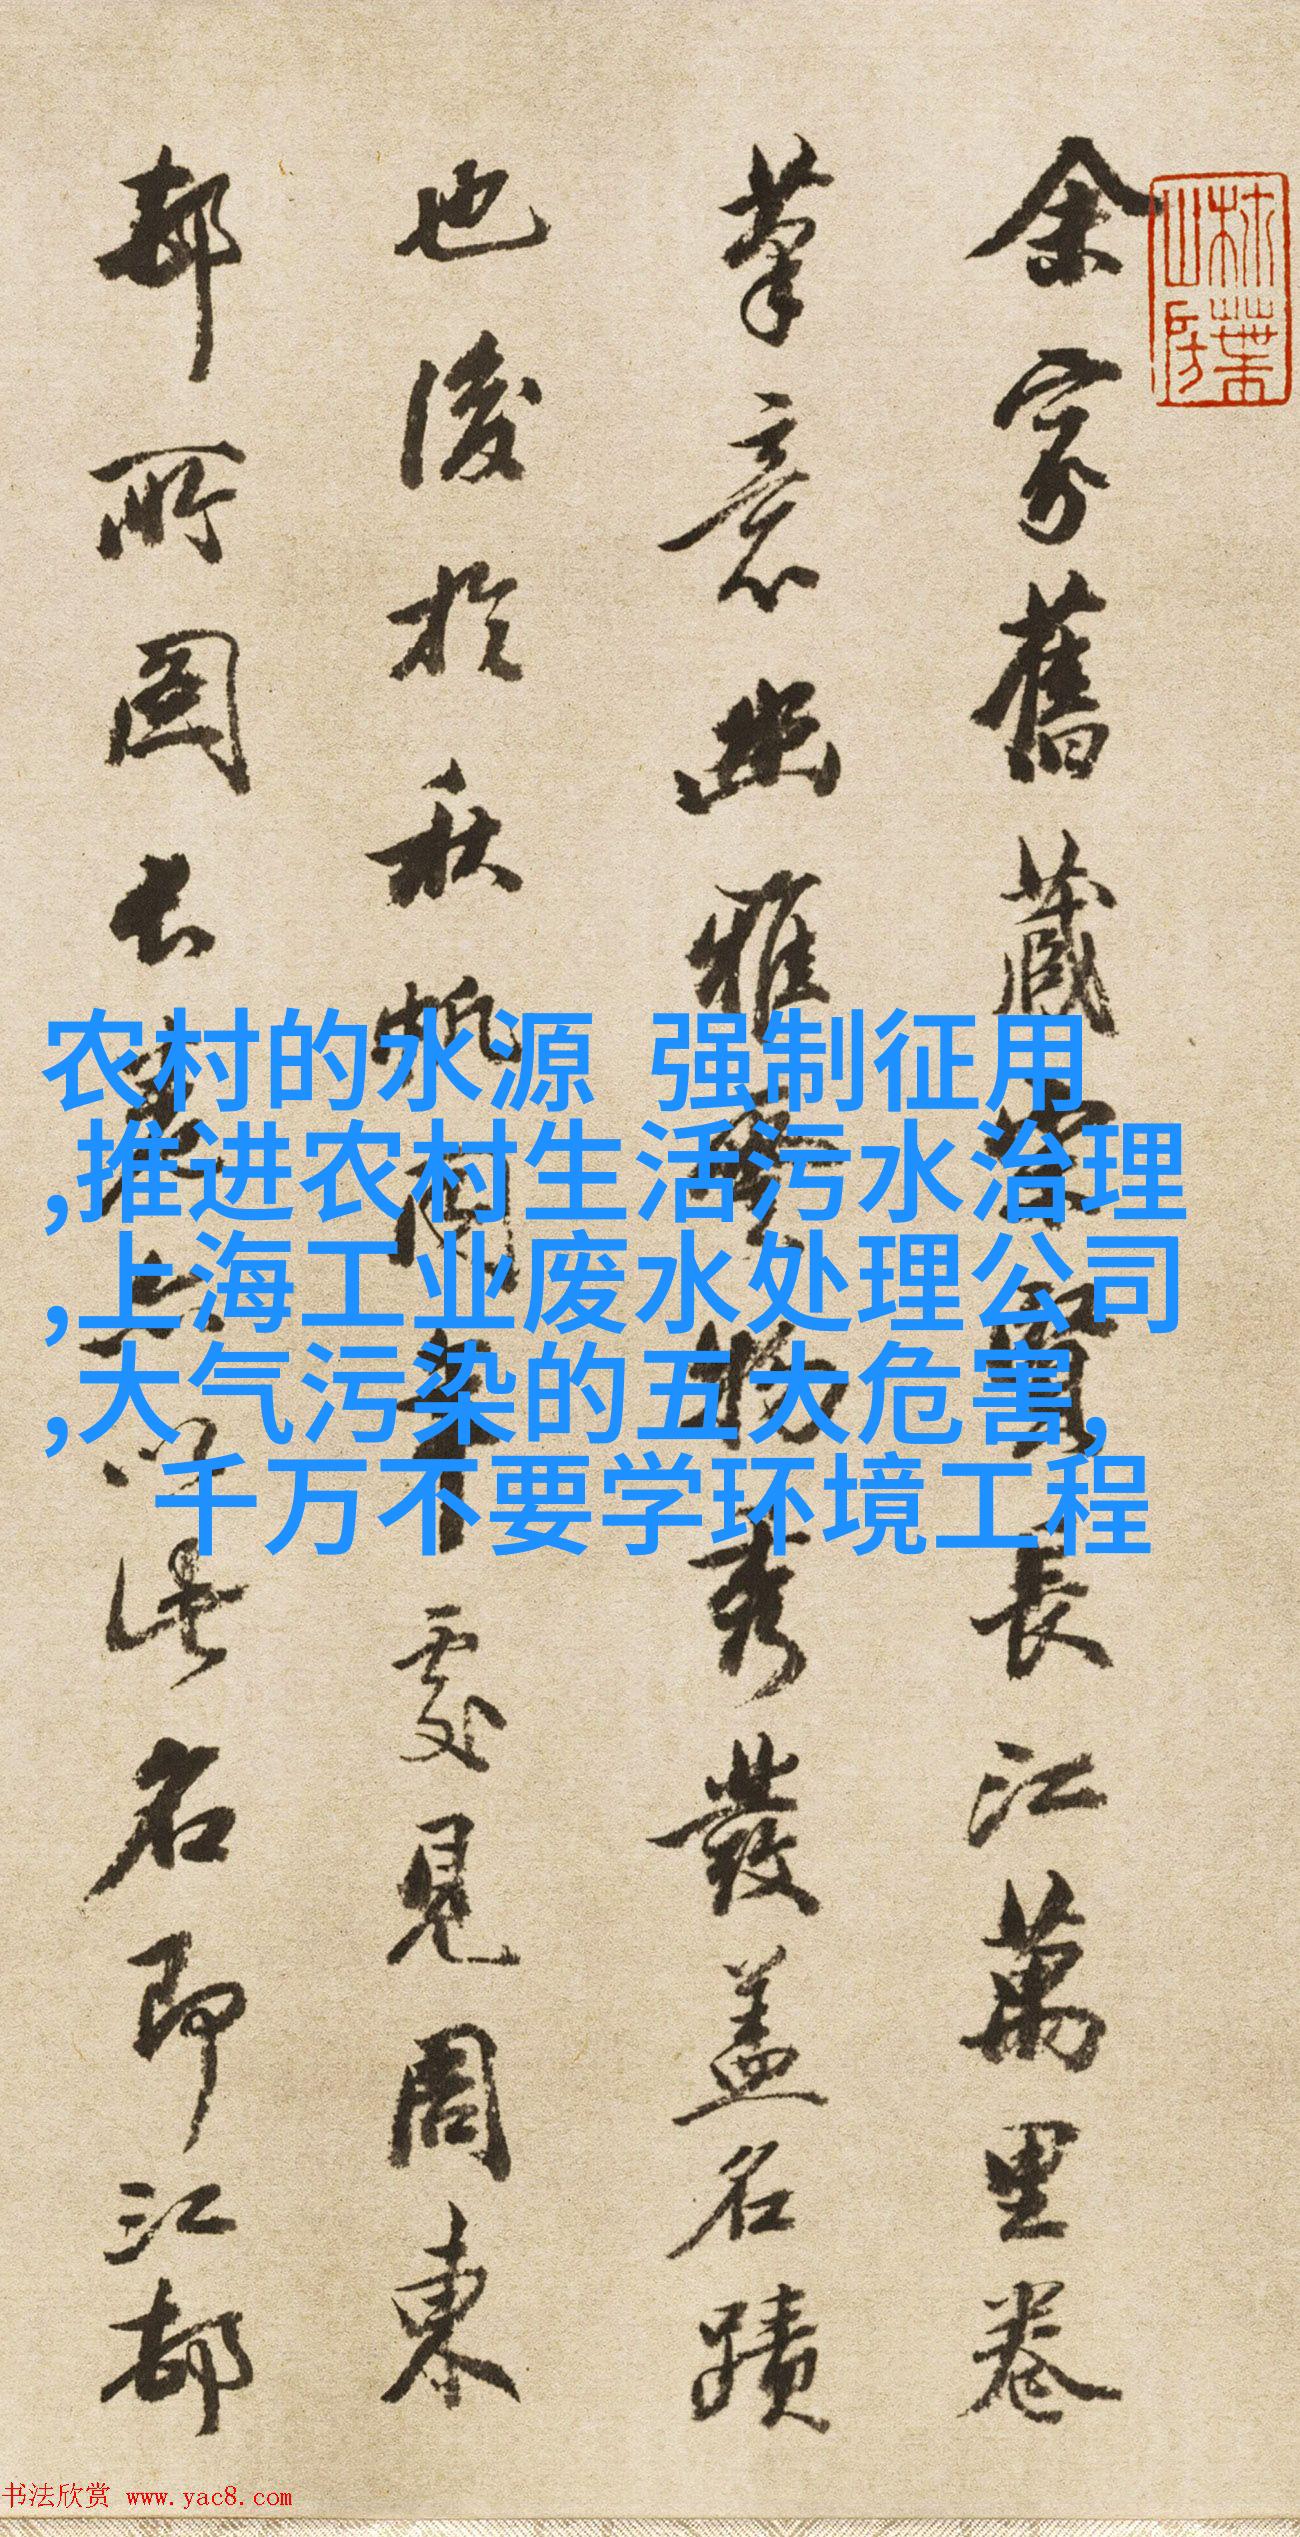 余家舊藏長江萬里卷
筆意幽雅物秀發蓋名蹟
也後於秋帆處見周東
邨所圖長亦以此名即江都
农村的水源 强制征用
,推进农村生活污水治理
,上海工业废水处理公司
,大气污染的五大危害,
千万不要学环境工程
书法欣赏 www.yac8.com